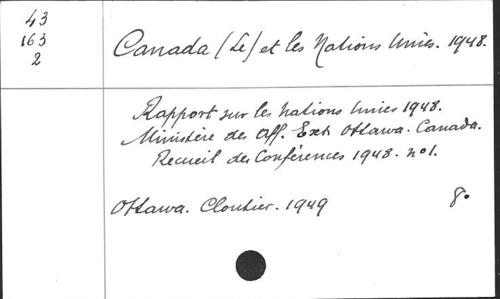 43
163
2
Canada (Le) et les Nations Unies. 1948.
Rapport sur les Nations Unies 1948.
Ministère des Aff. Ext. Ottawa. Canada.
Recueil des Conférences 1948. no 1.
Ottawa. Cloutier. 1949
8o